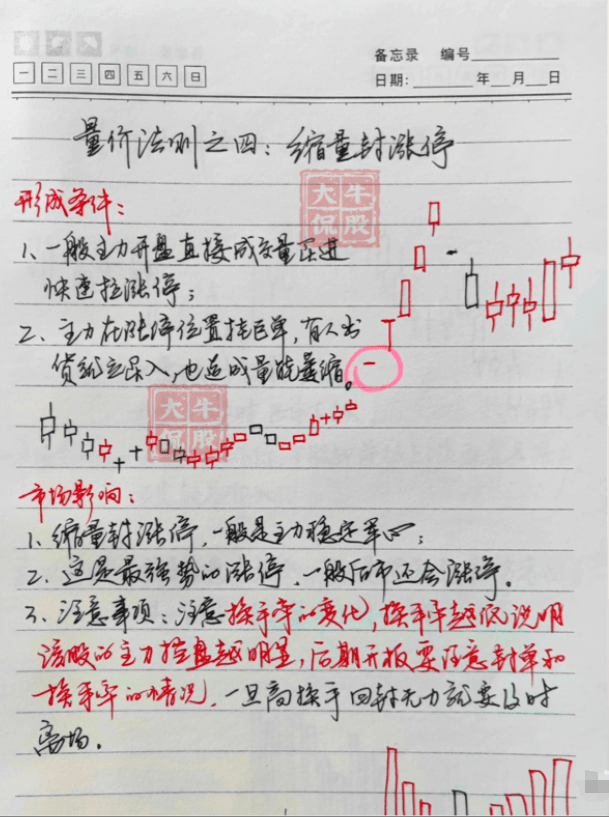 备忘录 编号
一 二 三 四 五 六 日
日期: 年 月 日
量价法则之四:缩量封涨停
大牛
侃股
形成条件:
1、一般主力开盘直接成交量买进
快速拉涨停;
2、主力在涨停位置挂巨单,有人出
货就立买入,也造成量能萎缩。
大牛
侃股
市场影响:
1、缩量封涨停,一般是主力稳定军心;
2、这是最强势的涨停,一般后市还会涨停。
3、注意事项:注意换手率的变化,换手率越低说明
该股的主力控盘越明显,后期开板要注意封单和
换手率的情况,一旦高换手回封无力就要及时
离场.